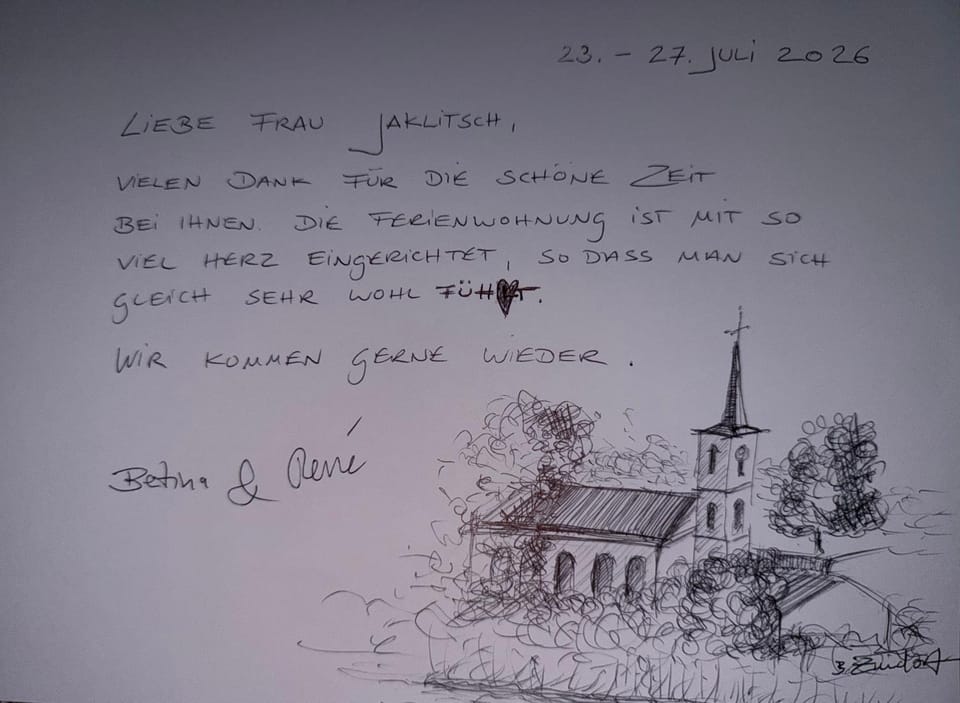 23. - 27. Juli 2026
LIEBE FRAU JAKLITSCH,
VIELEN DANK FÜR DIE SCHÖNE ZEIT
BEI IHNEN. DIE FERIENWOHNUNG IST MIT SO
VIEL HERZ EINGERICHTET, SO DASS MAN SICH
GLEICH SEHR WOHL FÜHLT.
WIR KOMMEN GERNE WIEDER.
Betina & René